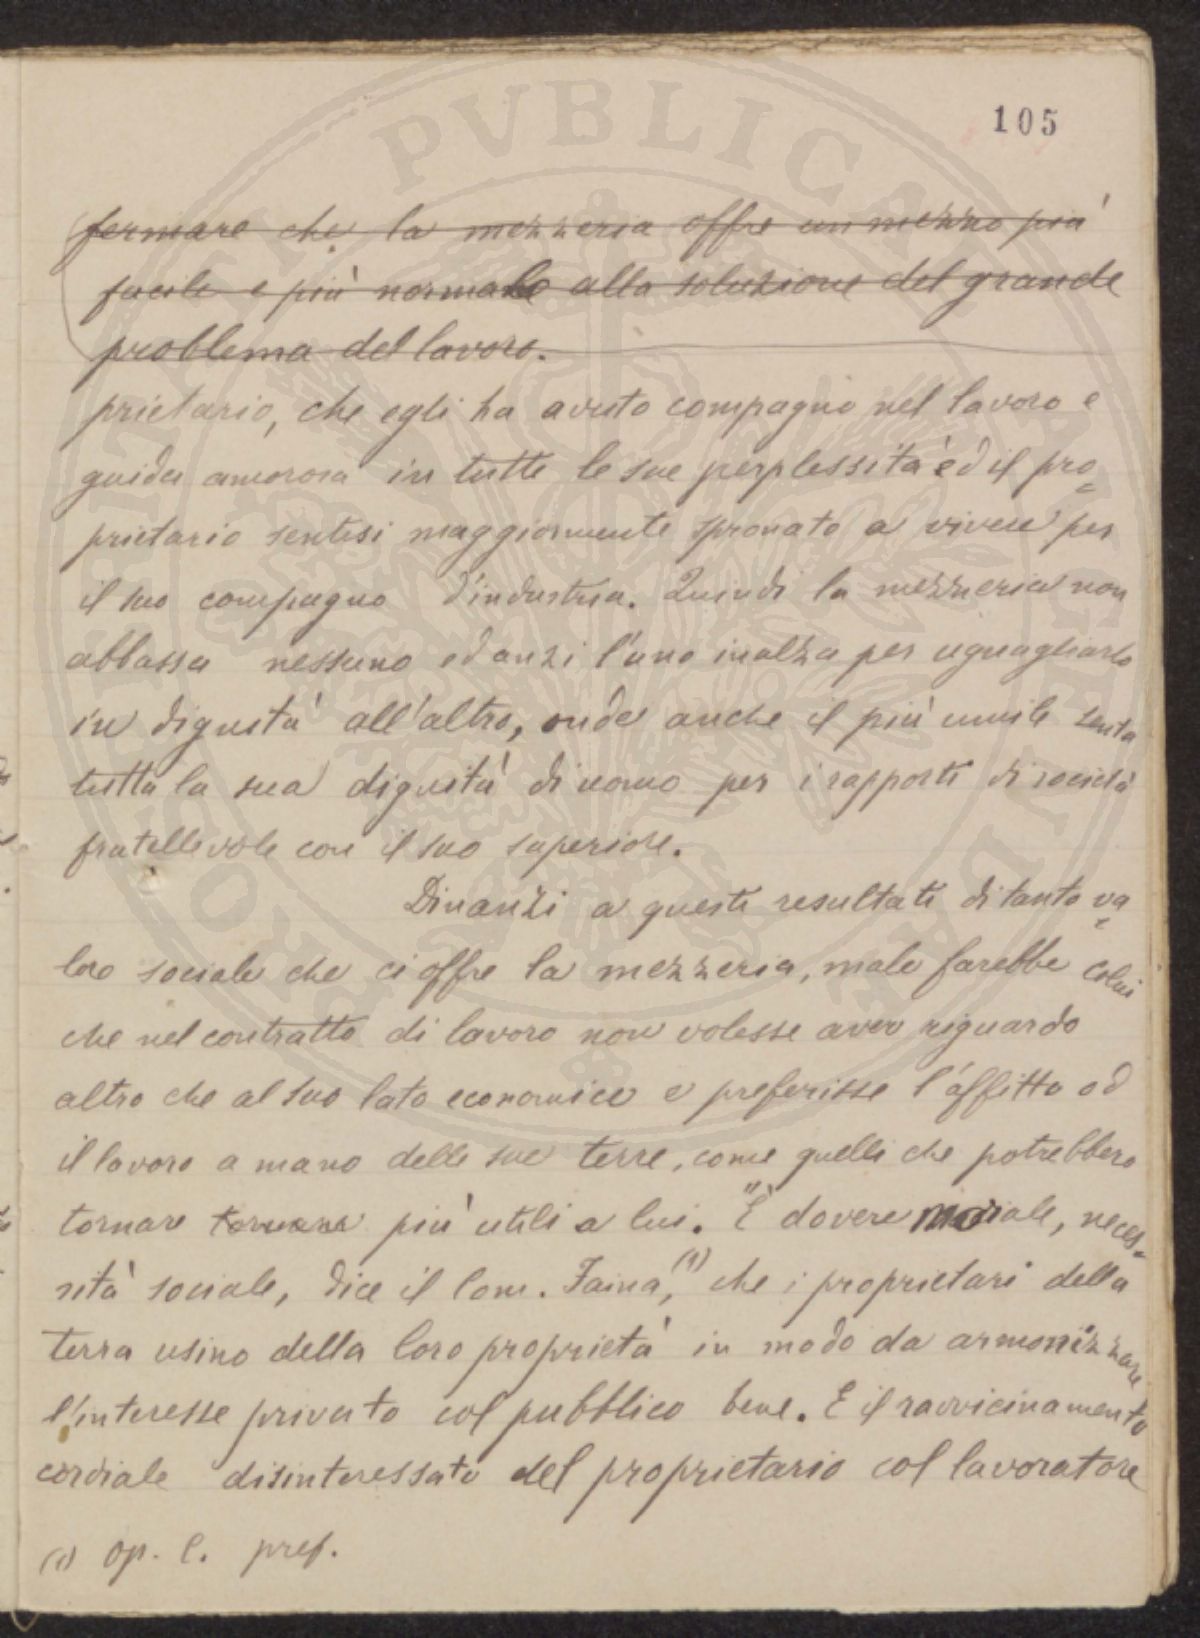 105
fermare che la mezzeria offre un mezzo più
facile e più normale alla soluzione del grande
problema del lavoro.
prietario, che egli ha avuto compagno nel lavoro e
guida amorosa in tutte le sue perplessità ed il pro=
prietario sentesi maggiormente spronato a vivere per
il suo compagno d'industria. Quindi la mezzeria non
abbassa nessuno ed anzi l'uno inalza per uguagliarlo
in dignità all'altro, onde anche il più umile senta
tutta la sua dignità di uomo per i rapporti di società
fratellevole con il suo superiore.
Dinanzi a questi resultati di tanto va=
lore sociale che ci offre la mezzeria, male farebbe colui
che nel contratto di lavoro non volesse aver riguardo
altro che al suo lato economico e preferisse l'affitto od
il lavoro a mano delle sue terre, come quelli che potrebbero
tornare tornare più utili a lui. "È dovere morale, neces=
sità sociale, dice il Com. Faina,(1) che i proprietari della
terra usino della loro proprietà in modo da armonizzare
l'interesse privato col pubblico bene. E il ravvicinamento
cordiale disinteressato del proprietario col lavoratore
(1) op. c. pref.
PVBLICAE